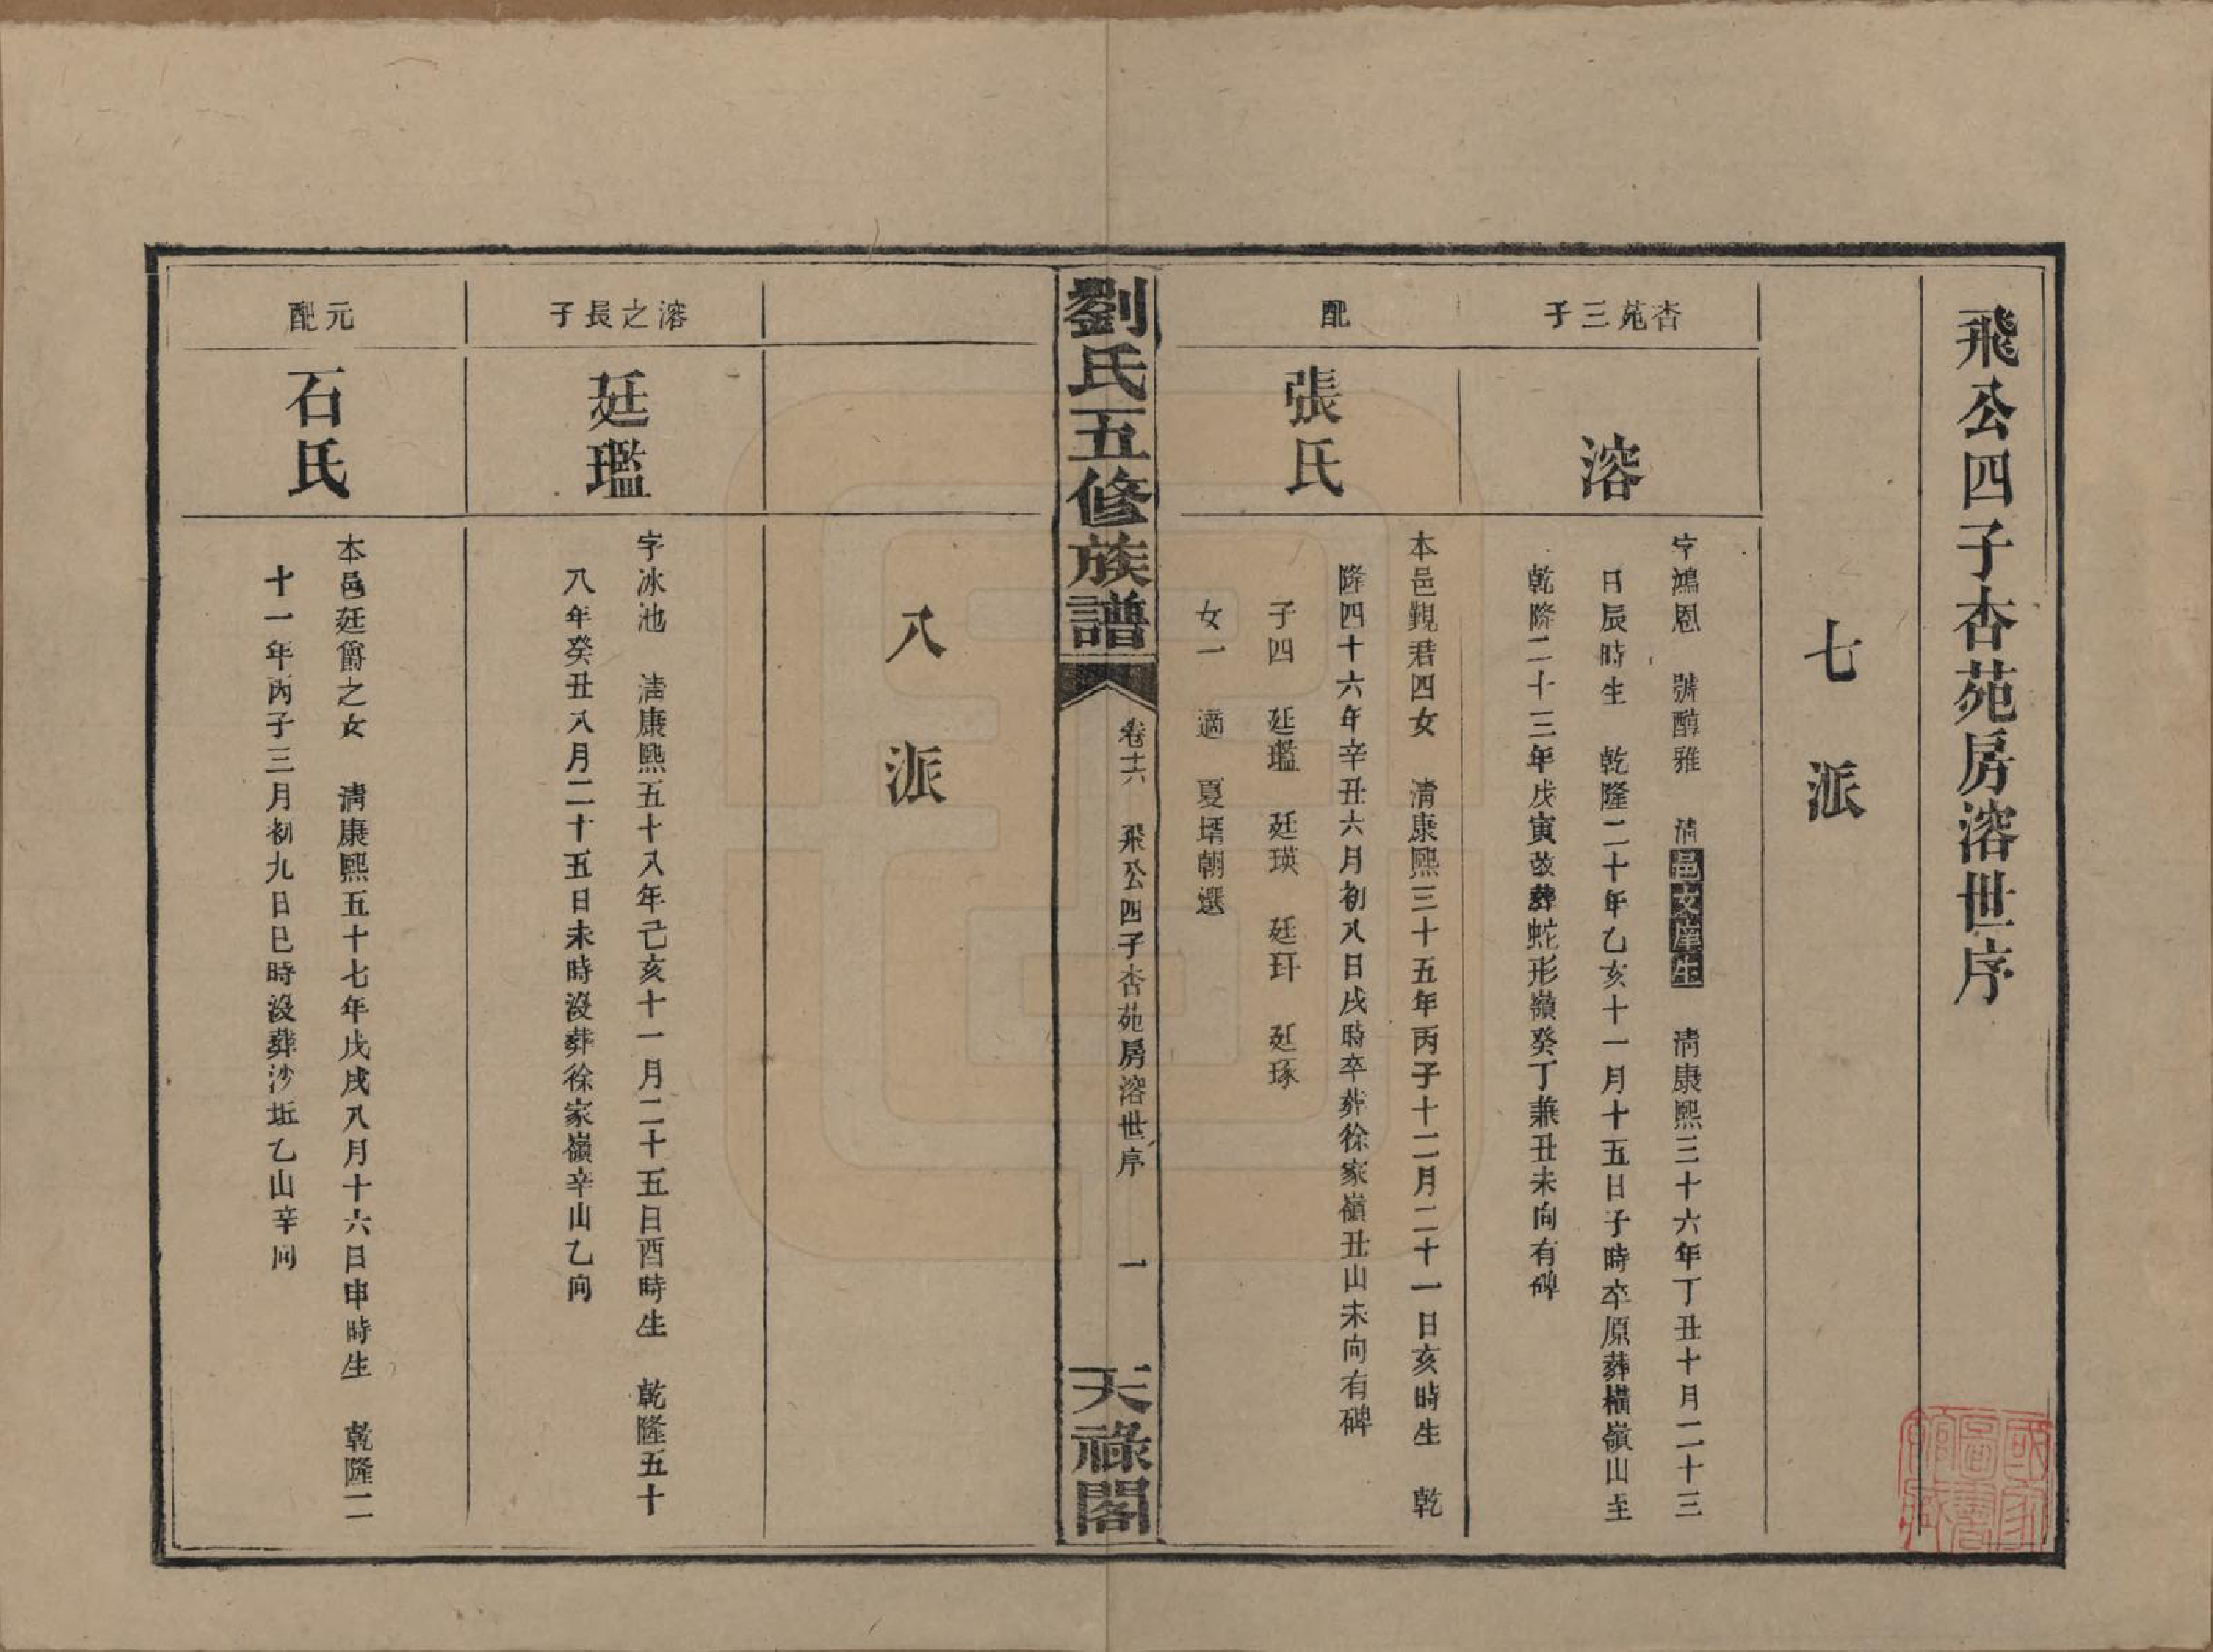 飛公四子杏苑房溶世序
七派
杏苑三子
溶
字鴻恩　號醇雅　清邑文庠生　清康熙三十六年丁丑十月二十三
日辰時生　乾隆二十年乙亥十一月十五日子時卒原葬橫嶺山至
乾隆二十三年戊寅改葬蛇形嶺癸丁兼丑未向有碑
配
張氏
本邑覲君四女　清康熙三十五年丙子十二月二十一日亥時生　乾
隆四十六年辛丑六月初八日戌時卒葬徐家嶺丑山未向有碑
子四　廷瓛　廷瑛　廷玕　廷琢
女一　適　夏壻朝選
劉氏五修族譜
卷十六　飛公四子杏苑房溶世序　一
天祿閣
八派
溶之長子
廷瓛
字冰池　清康熙五十八年己亥十一月二十五日酉時生　乾隆五十
八年癸丑八月二十五日未時沒葬徐家嶺辛山乙向
元配
石氏
本邑廷爵之女　清康熙五十七年戊戌八月十六日申時生　乾隆二
十一年丙子三月初九日巳時沒葬沙坵乙山辛向
國家圖書館藏